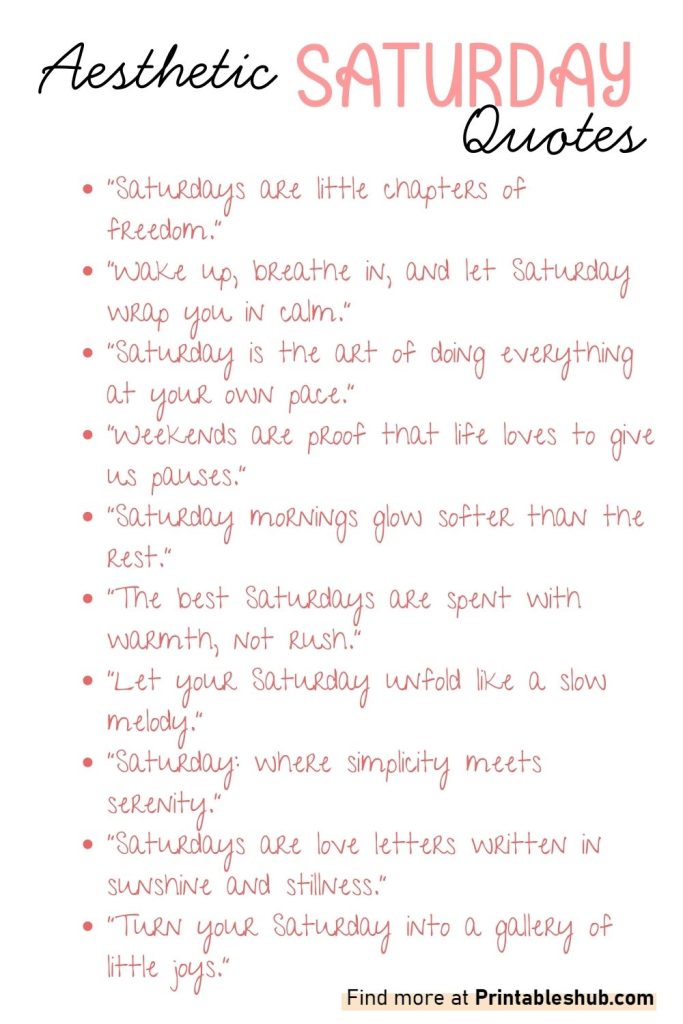 Aesthetic SATURDAY
Quotes
• "Saturdays are little chapters of
freedom."
• "Wake up, breathe in, and let Saturday
wrap you in calm."
• "Saturday is the art of doing everything
at your own pace."
• "Weekends are proof that life loves to give
us pauses."
• "Saturday mornings glow softer than the
rest."
• "The best Saturdays are spent with
warmth, not rush."
• "Let your Saturday unfold like a slow
melody."
• "Saturday: where simplicity meets
serenity."
• "Saturdays are love letters written in
sunshine and stillness."
• "Turn your Saturday into a gallery of
little joys."
Find more at Printableshub.com